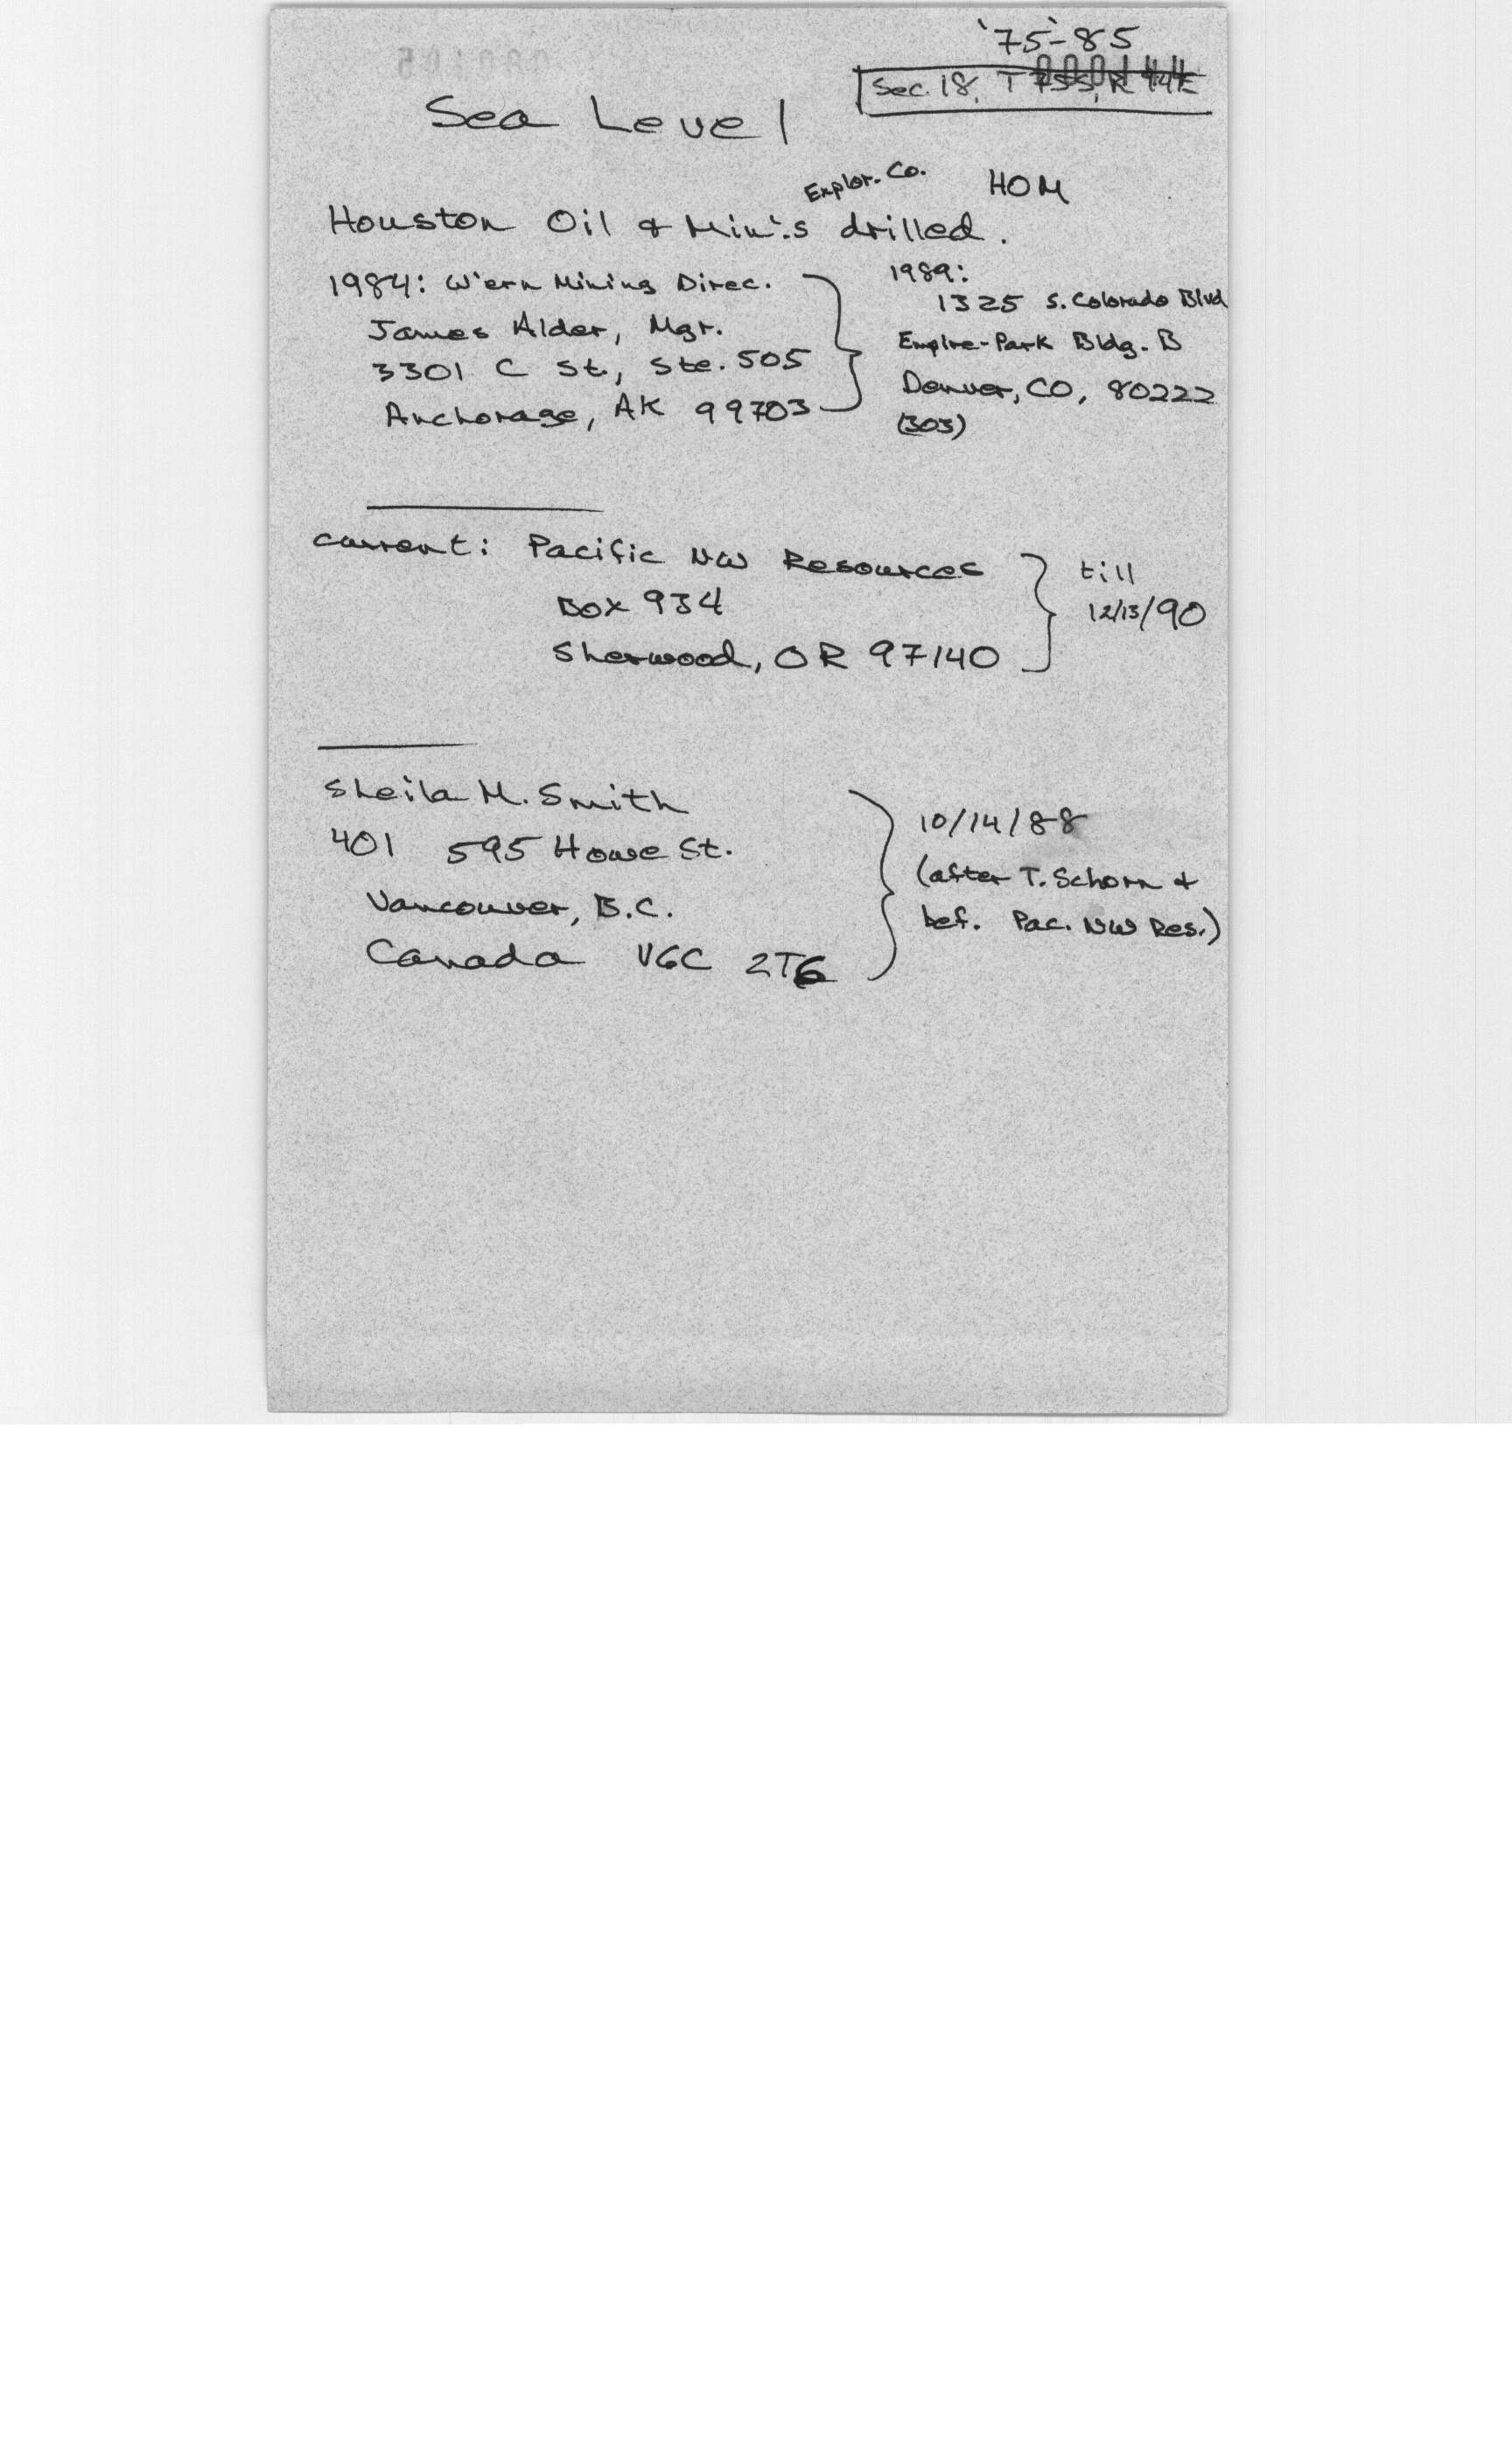 '75-'85
000144
Sec. 18, T 75S, R 94E
Sea Level
Explor. Co.
HOM
Houston Oil & Min's drilled.
1984: W'ern Mining Direc.
James Alder, Mgr.
3301 C St., Ste. 505
Anchorage, AK 99703
1989:
1325 S. Colorado Blvd
Empire-Park Bldg. B
Denver, CO, 80222
(303)
current: Pacific NW Resources
Box 934
Sherwood, OR 97140
till
12/13/90
Sheila M. Smith
401 595 Howe St.
Vancouver, B.C.
Canada V6C 2T6
10/14/88
(after T. Schorn &
bef. Pac. NW Res.)